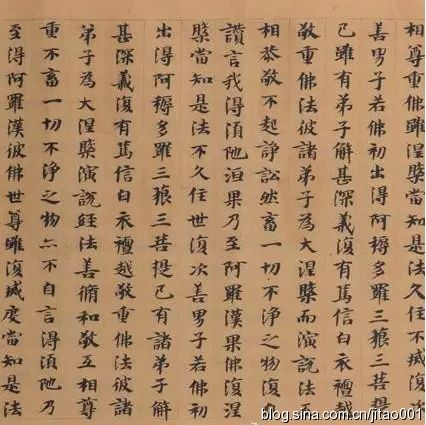 相尊重佛雖涅槃當知是法久住不滅復次
善男子若佛初出得阿耨多羅三藐三菩提
已雖有弟子解甚深義復有篤信白衣檀越
敬重佛法彼諸弟子為大涅槃而演說法
相恭敬不起諍訟然畜一切不淨之物復
讚言我得須陀洹果乃至阿羅漢果佛復涅
槃當知是法不久住世復次善男子若佛初
出得阿耨多羅三藐三菩提已有諸弟子解
甚深義復有篤信白衣檀越敬重佛法彼諸
弟子為大涅槃演說經法善脩和敬互相尊
重不畜一切不淨之物亦不自言得須陀乃
至得阿羅漢彼佛世尊雖復滅度當知是法
blog.sina.com.cn/jitao001